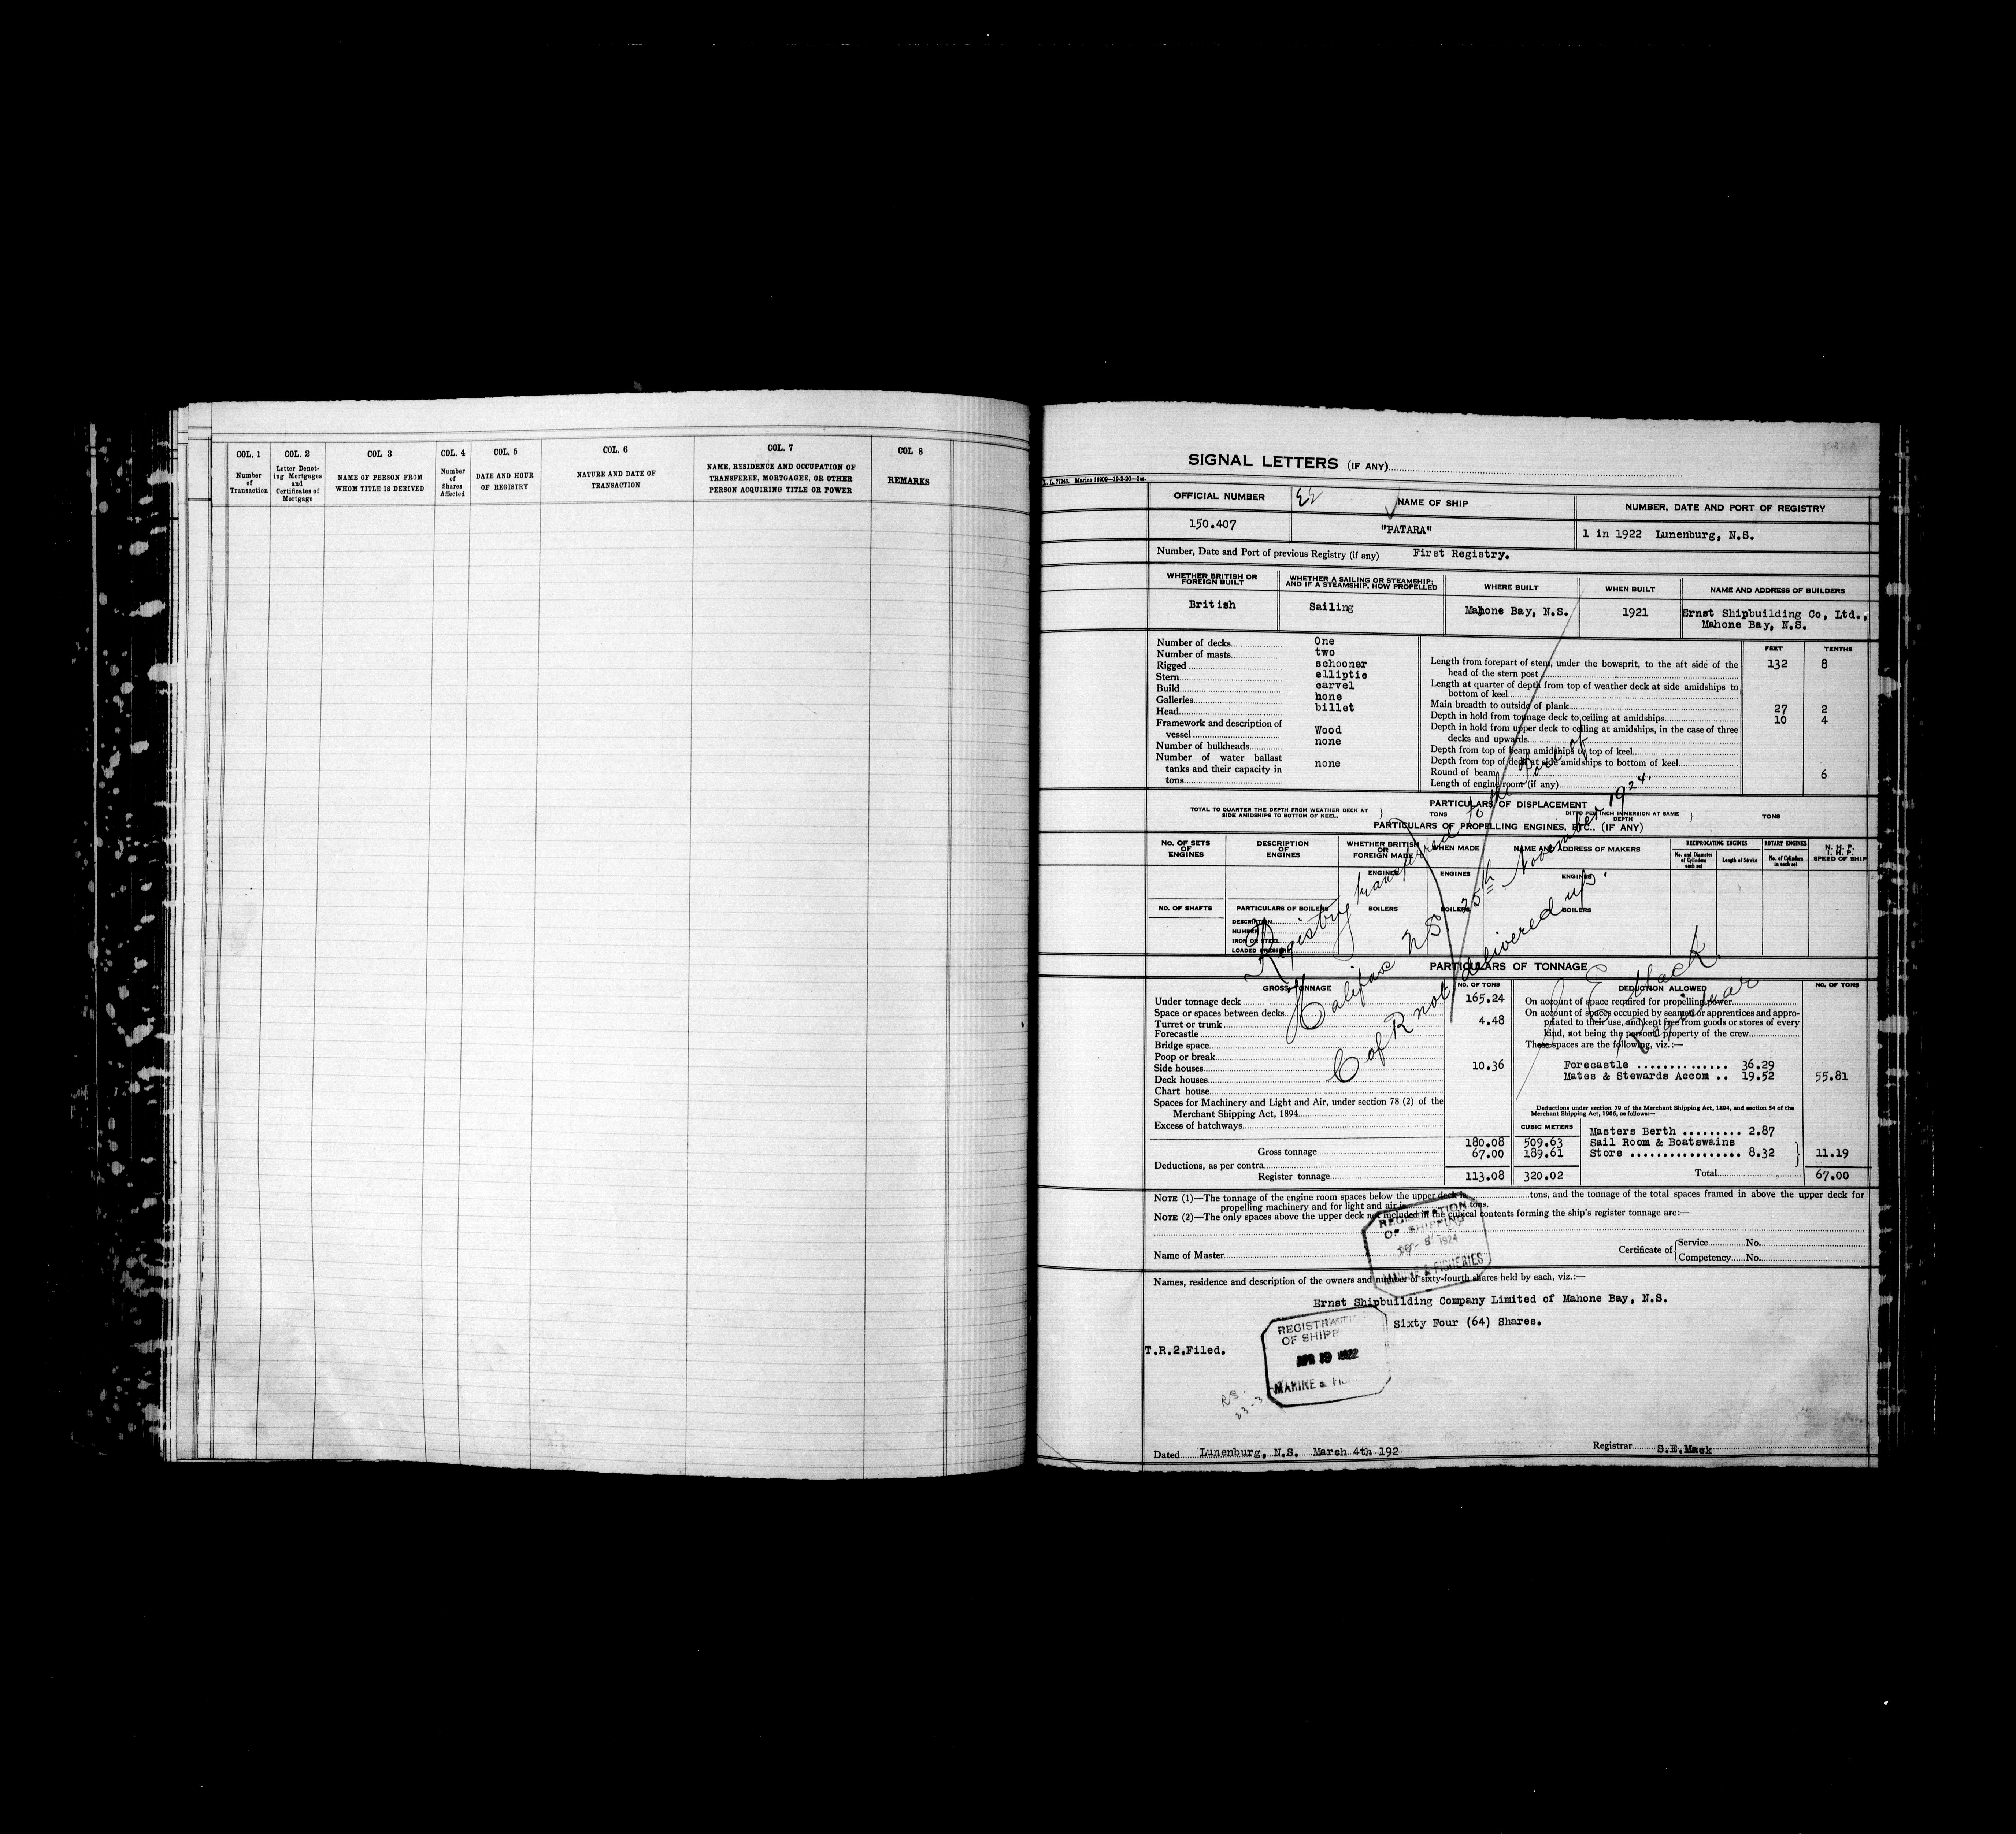 COL. 1
Number of Transaction
COL. 2
Letter Denoting Mortgages and Certificates of Mortgage
COL 3
NAME OF PERSON FROM WHOM TITLE IS DERIVED
COL. 4
Number of Shares Affected
COL. 5
DATE AND HOUR OF REGISTRY
COL. 6
NATURE AND DATE OF TRANSACTION
COL. 7
NAME, RESIDENCE AND OCCUPATION OF TRANSFEREE, MORTGAGEE, OR OTHER PERSON ACQUIRING TITLE OR POWER
COL 8
REMARKS
SIGNAL LETTERS (IF ANY)
OFFICIAL NUMBER
NAME OF SHIP
NUMBER, DATE AND PORT OF REGISTRY
150.407
"PATARA"
1 in 1922 Lunenburg, N.S.
Number, Date and Port of previous Registry (if any) First Registry.
WHETHER BRITISH OR FOREIGN BUILT
WHETHER A SAILING OR STEAMSHIP; AND IF A STEAMSHIP, HOW PROPELLED
WHERE BUILT
WHEN BUILT
NAME AND ADDRESS OF BUILDERS
British
Sailing
Mahone Bay, N.S.
1921
Ernst Shipbuilding Co, Ltd.,
Mahone Bay, N.S.
Number of decks One
Number of masts two
Rigged schooner
Stern elliptic
Build carvel
Galleries none
Head billet
Framework and description of
vessel Wood
Number of bulkheads none
Number of water ballast
tanks and their capacity in none
tons
FEET TENTHS
Length from forepart of stem, under the bowsprit, to the aft side of the 132 8
head of the stern post
Length at quarter of depth from top of weather deck at side amidships to
bottom of keel
Main breadth to outside of plank 27 2
Depth in hold from tonnage deck to ceiling at amidships 10 4
Depth in hold from upper deck to ceiling at amidships, in the case of three
decks and upwards
Depth from top of beam amidships to top of keel
Depth from top of deck at side amidships to bottom of keel
Round of beam 6
Length of engine room (if any)
PARTICULARS OF DISPLACEMENT
TOTAL TO QUARTER THE DEPTH FROM WEATHER DECK AT
SIDE AMIDSHIPS TO BOTTOM OF KEEL.
TONS
DITTO PER INCH IMMERSION AT SAME
DEPTH
TONS
PARTICULARS OF PROPELLING ENGINES, ETC., (IF ANY)
No. OF SETS OF ENGINES
DESCRIPTION OF ENGINES
WHETHER BRITISH OR FOREIGN MADE
WHEN MADE
NAME AND ADDRESS OF MAKERS
RECIPROCATING ENGINES
No. and Diameter of Cylinders each set
Length of Stroke
ROTARY ENGINES
No. of Cylinders in each set
N. H. P.
I. H. P.
SPEED OF SHIP
ENGINES
ENGINES
ENGINES
No. OF SHAFTS
PARTICULARS OF BOILERS
BOILERS
BOILERS
BOILERS
DESCRIPTION
NUMBER
IRON OR STEEL
LOADED PRESSURE
Registry transferred to the Port of
Halifax NS 25th November 1924.
C of R not delivered up.
S E Mack
Registrar
PARTICULARS OF TONNAGE
GROSS TONNAGE
No. OF TONS
DEDUCTION ALLOWED
No. OF TONS
Under tonnage deck 165.24
Space or spaces between decks
Turret or trunk 4.48
Forecastle
Bridge space
Poop or break
Side houses 10.36
Deck houses
Chart house
Spaces for Machinery and Light and Air, under section 78 (2) of the
Merchant Shipping Act, 1894
Excess of hatchways
CUBIC METERS
Gross tonnage 180.08 509.63
Deductions, as per contra 67.00 189.61
Register tonnage 113.08 320.02
On account of space required for propelling power
On account of spaces occupied by seamen or apprentices and appro-
priated to their use, and kept free from goods or stores of every
kind, not being the personal property of the crew
These spaces are the following, viz.:—
Forecastle .............. 36.29
Mates & Stewards Accom .. 19.52 55.81
Deductions under section 79 of the Merchant Shipping Act, 1894, and section 54 of the
Merchant Shipping Act, 1906, as follows:—
Masters Berth ......... 2.87
Sail Room & Boatswains
Store ................. 8.32 11.19
Total 67.00
NOTE (1)—The tonnage of the engine room spaces below the upper deck is tons, and the tonnage of the total spaces framed in above the upper deck for
propelling machinery and for light and air is tons.
NOTE (2)—The only spaces above the upper deck not included in the cubical contents forming the ship's register tonnage are:—
REGISTRATION
OF SHIPPING
5 1924
MARINE & FISHERIES
Name of Master
Certificate of
Service No.
Competency No.
Names, residence and description of the owners and number of sixty-fourth shares held by each, viz.:—
Ernst Shipbuilding Company Limited of Mahone Bay, N.S.
Sixty Four (64) Shares.
T.R.2.Filed.
REGISTRATI
OF SHIPP
APR 19 1922
MARINE &
Dated Lunenburg, N.S. March 4th 192
Registrar S.E.Mack